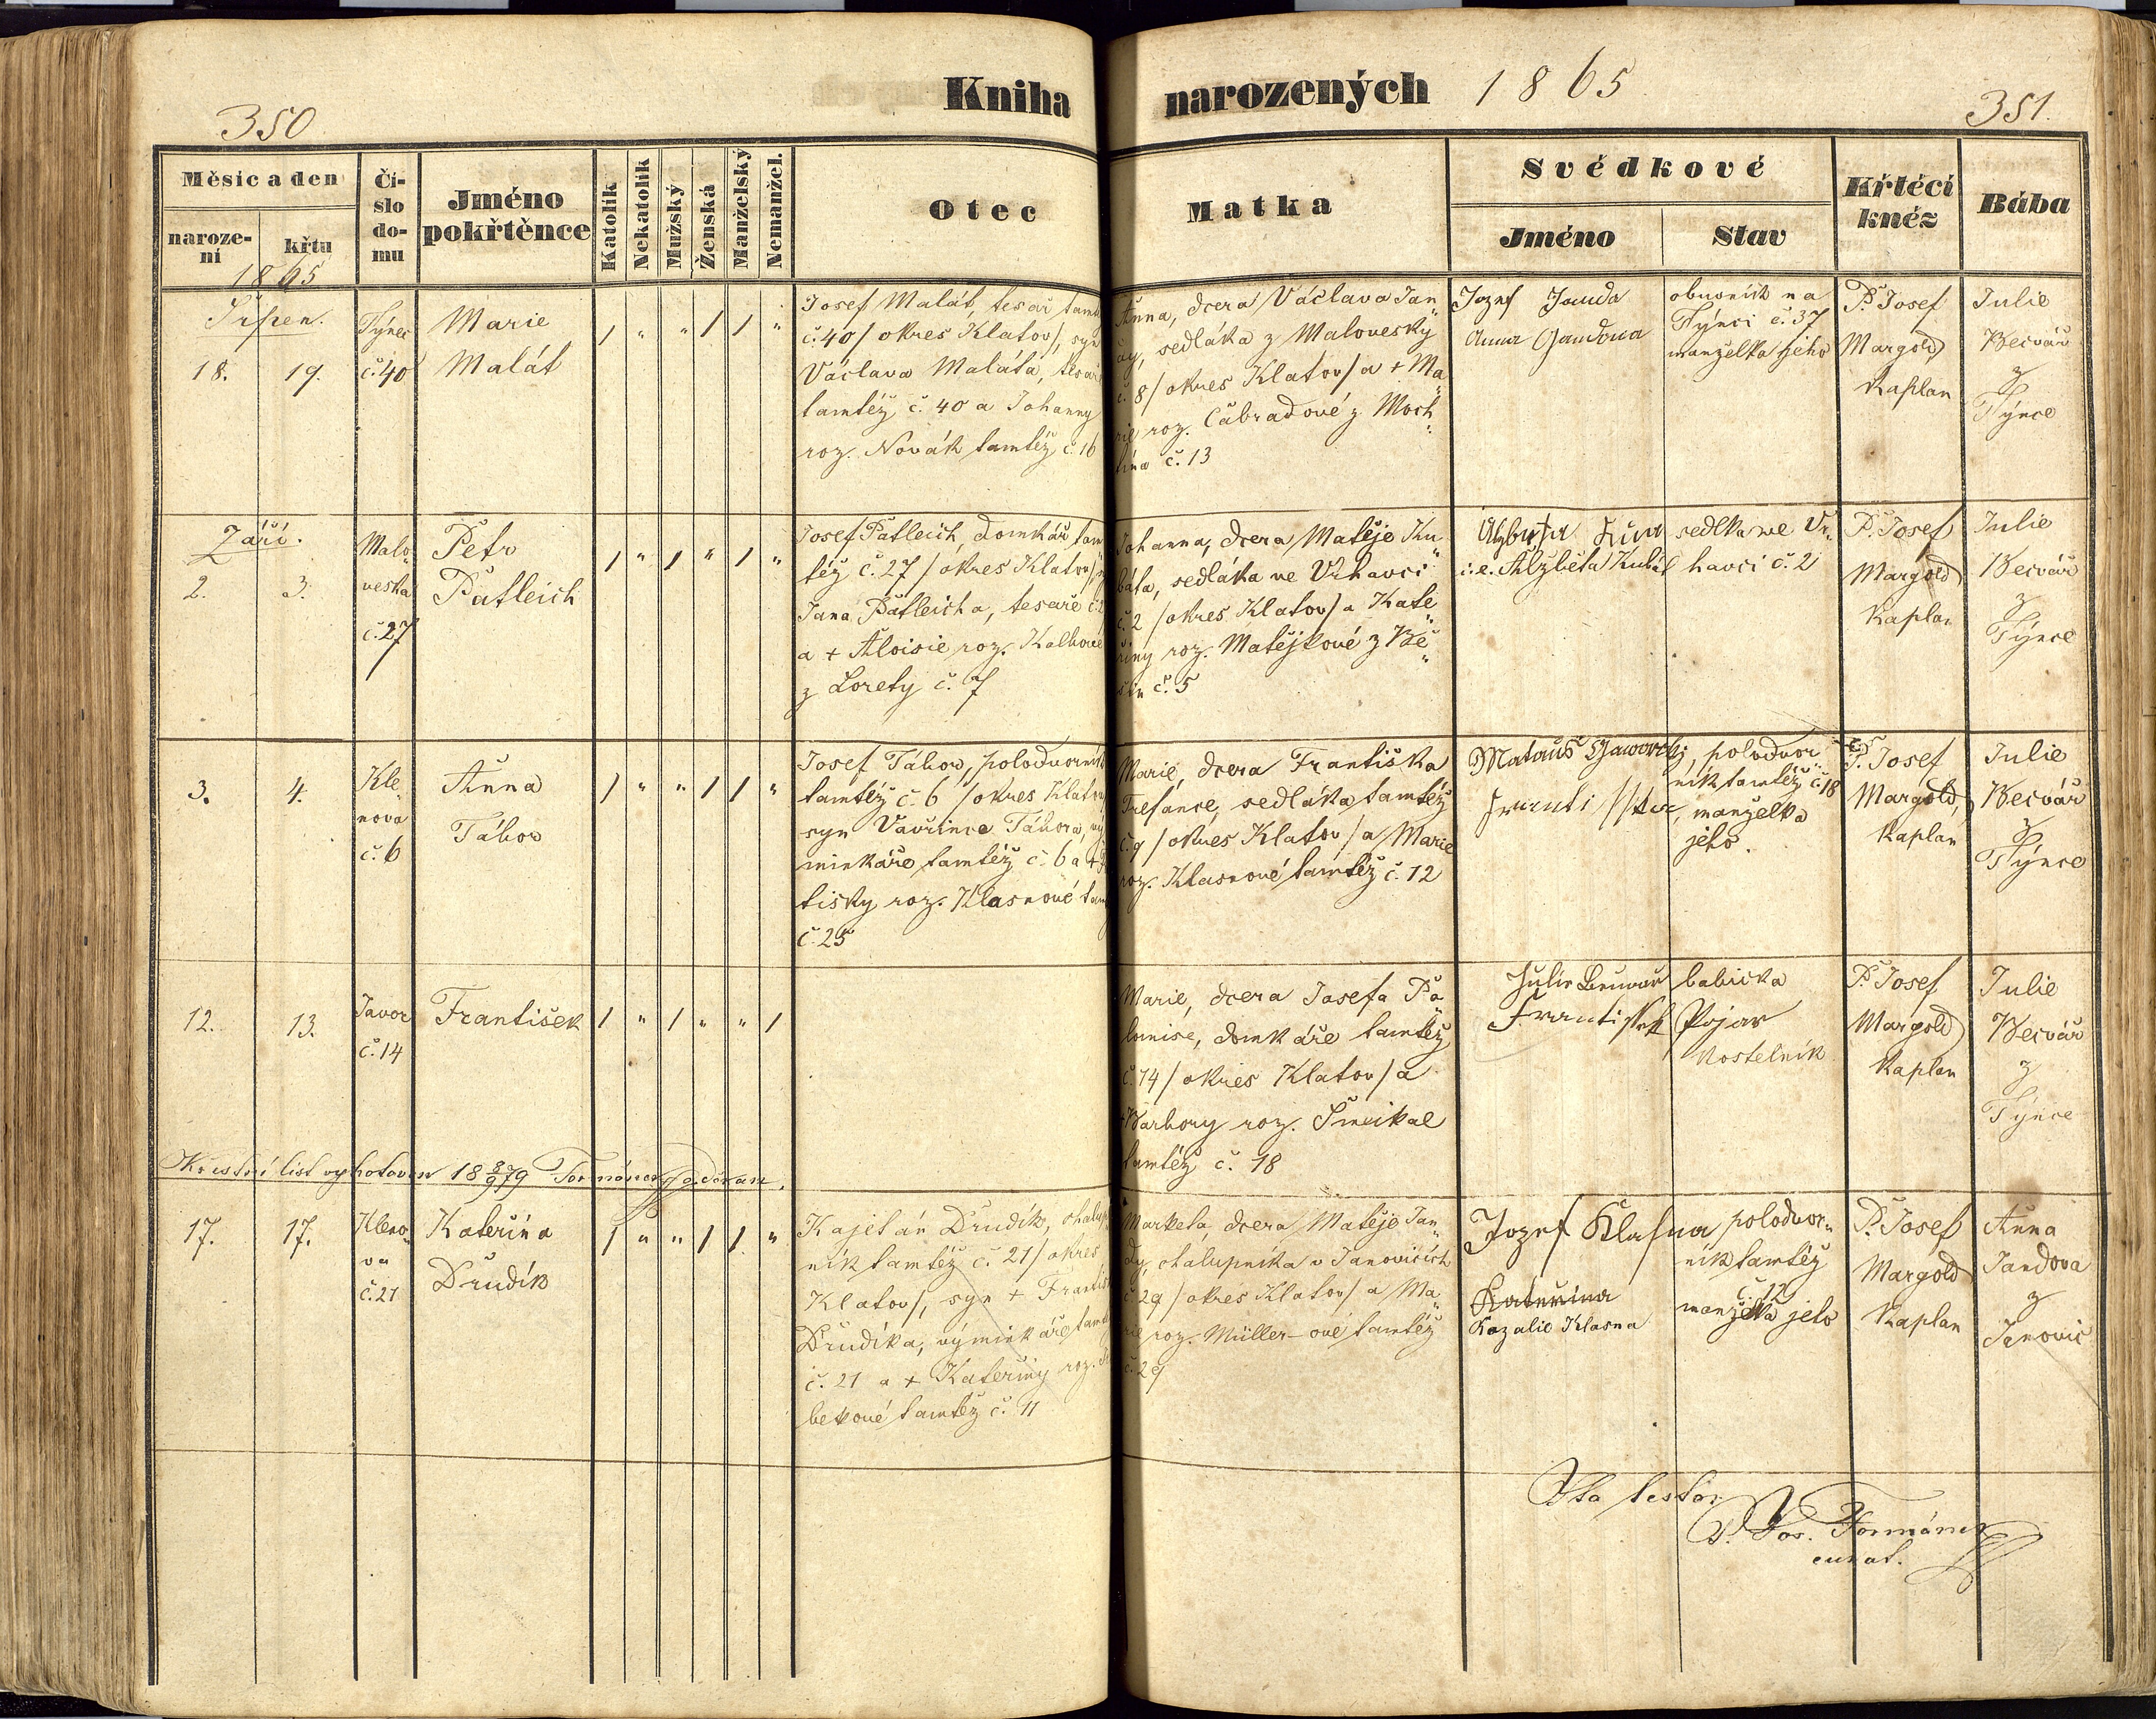 350
Kniha
narozených 1865
351.
Měsíc a den
naroze-
ní
křtu
1865
Čí-
slo
do-
mu
Jméno
pokřtěnce
Katolík
Nekatolík
Mužský
Ženská
Manželský
Nemanžel.
Otec
Matka
Svědkové
Jméno
Stav
Křtěcí
kněz
Bába
Srpen.
18. 19.
Týnec
č. 40
Marie
Malát
/ " " / / "
Josef Malát, tesař
č. 40 / okres Klatov/, syn
Václava Maláta, tesaře
tamtéž č. 40 a Johanny
roz. Novák tamtéž č. 16
Anna, dcera Václava Jan„
dy, sedláka z Malovesky
č. 8 / okres Klatov / a + Ma„
rie roz. Čabradové z Moch„
tína č. 13
Jozef Janda
Anna Jandova
na
Týnci č. 37
manželka jeho
P. Josef
Margold
Kaplan
Julie
Bečvář
z
Týnce
Září.
2. 3.
Malo„
veska
č. 27
Petr
Patleich
/ " / " / "
Josef Patleich, domkář tam„
též č. 27 / okres Klatov/
Jana Patleicha, tesaře
a + Aloisie roz. Kalhové
z Lorety č. 7
Johanna, dcera Matěje Ku„
báta, sedláka ve Vrhavci
č. 2 / okres Klatov / a Kate„
řiny roz. Matějkové z Bě„
šin č. 5
i.e. Alžběta Kubát
sedlka we Vr„
havci č. 2
P. Josef
Margold
Kaplan
Julie
Bečvář
z
Týnce
3. 4.
Kle„
nova
č. 6
Anna
Tábor
/ " " / / "
Josef Tábor, polodvorník
tamtéž č. 6 / okres Klatov
syn Vavřince Tábora, vý„
minkáře tamtéž č. 6 a +
tišky roz. Klasnové tam
č. 25
Marie, dcera Františka
Trefance, sedláka tamtéž
č. 9 / okres Klatov / a Marie
roz. Klasnové tamtéž č. 12
Matauš
, polodvor„
ník tamtéž č. 18
, manželka
jeho.
P. Josef
Margold,
Kaplan
Julie
Bečvář
z
Týnce
12. 13.
Javor
č. 14
František
/ " / " " /
Marie, dcera Josefa Pa„
lomise, domkáře tamtéž
č. 14 / okres Klatov / a
+ Barbory roz. Šmeikal
tamtéž č. 18
Julie Bečvař babička
Frantissek Pojar
Kostelník
P. Josef
Margold
Kaplan
Julie
Bečvář
z
Týnce
Křestní list vyhotoven 18 8/9 79 Formánek děkan.
17. 17.
Kleno„
va
č. 21
Kateřina
Drudík
/ " " / / "
Kajetán Drudík, chalup„
ník tamtéž č. 21 / okres
Klatov/, syn + Františ
Drudíka, výminkáře tamt
č. 21 a + Kateřiny roz.
bekové tamtéž č. 11
Marketa, dcera Matěje Jan„
dy, chalupníka v Janovicích
č. 29 / okres Klatov / a Ma„
rie roz. Müller-ové tamtéž
č. 29
Jozef Klasna
Kateřina
Rozalie Klasna
polodvor„
ník tamtéž
č. 12
manželka jeho
P. Josef
Margold
Kaplan
Anna
Jandova
z
Janovic
Ita testor
P. Jos. Formánek
curat.